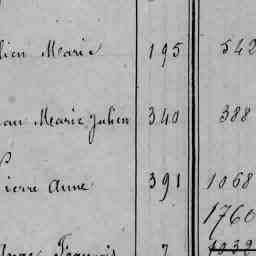 lien Marie 195 542
ean Marie Julien 340 388
Pierre Anne 391 1068
1760
François 7 1032